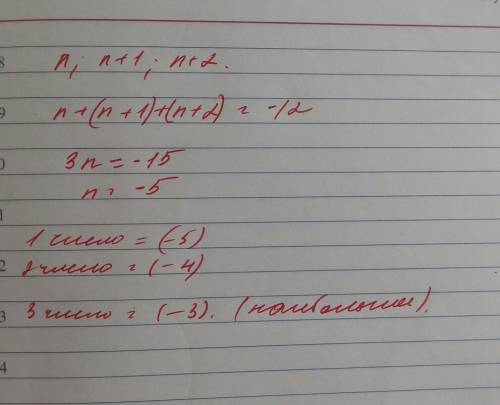 8 n; n+1; n+2.
9 n+(n+1)+(n+2) = -12
0 3n = -15
n = -5
1
1 число = (-5)
2 2 число = (-4)
3 3 число = (-3). (наибольшее).
4